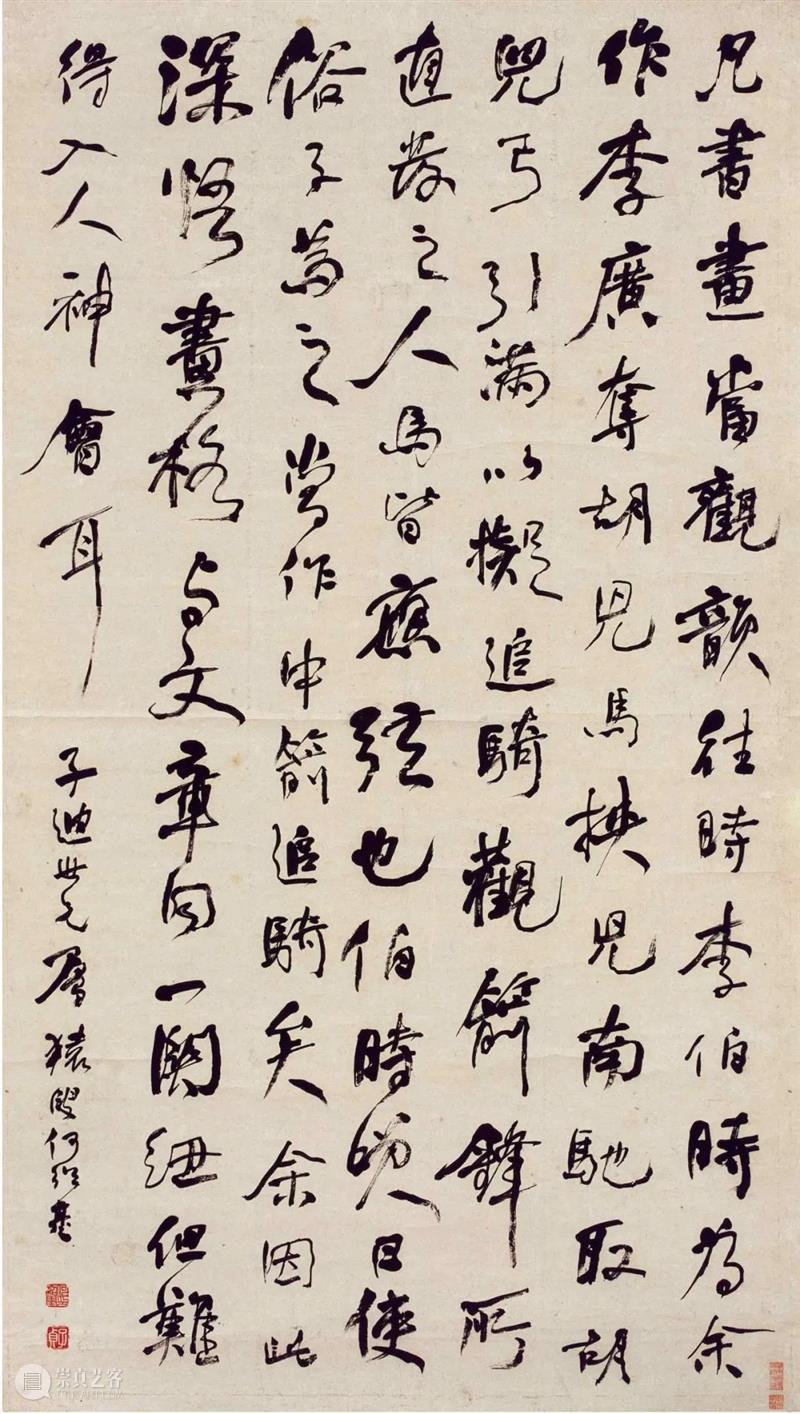 凡書畫當觀韻往時李伯時為余
作李廣奪胡兒馬挾兒南馳取胡
兒弓引滿以擬追騎觀箭鋒所
直發之人馬皆應弦也伯時笑曰使
俗子為之當作中箭追騎矣余因此
深悟畫格与文章同一關紐但難
得入人神會耳
子迪世兄屬猨叟何紹基
崇真艺客